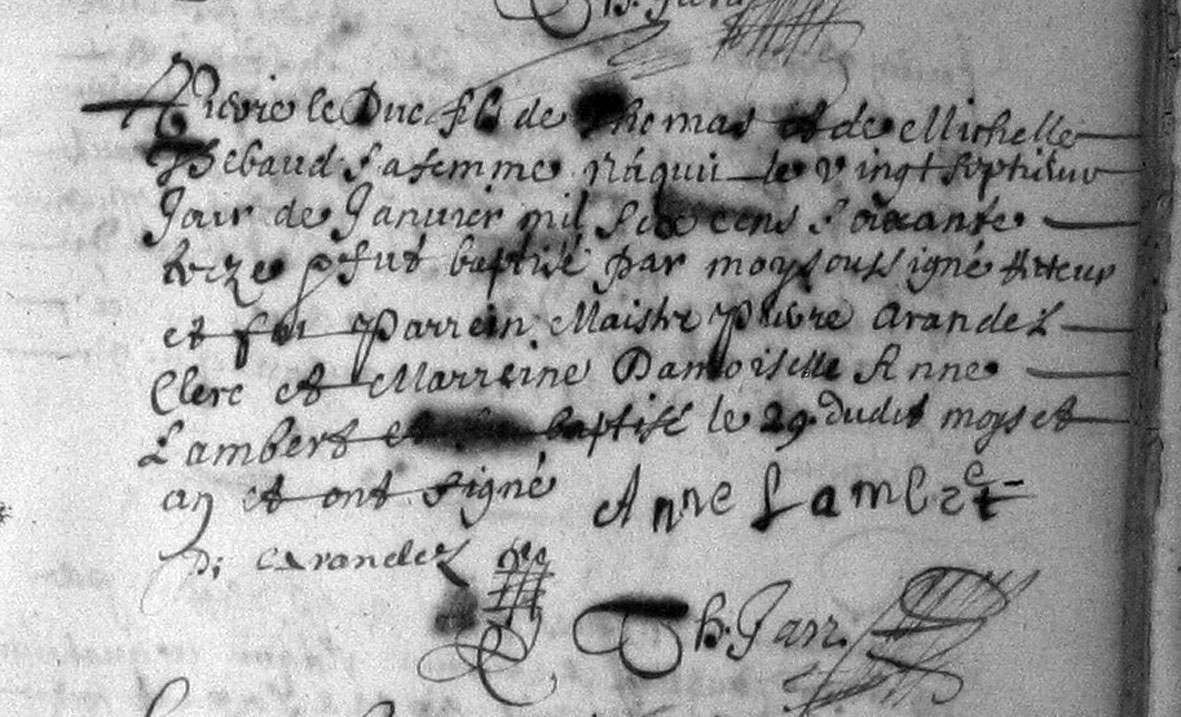 Pierre le Duc fils de Thomas et de Michelle
Thebaud sa femme náquit le vingt septiesme
Jour de Januier mil six cens soixante
treze fut baptisé par moy soussigné Recteur
et fut Parrein Maistre pierre Arandel
Clerc et Marreine Damoiselle Anne
Lambert et baptisé le 29 dudit moys et
an et ont signé Anne Lambert
Arandel
Garz